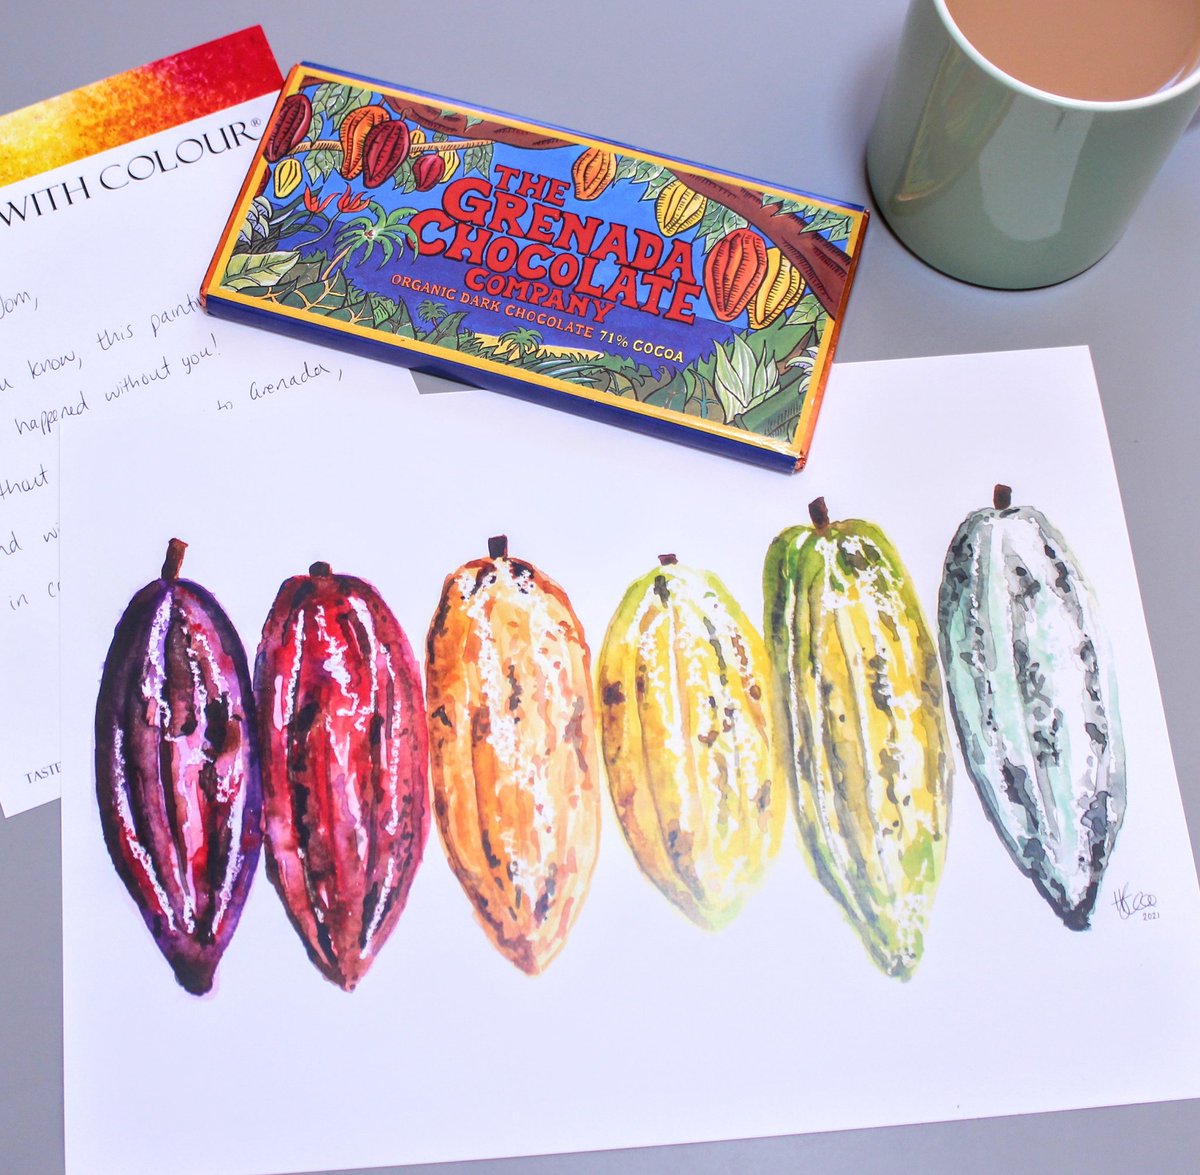 WITH COLOUR®
know, this
happened without you!
in Grenada,
in
TASTE
THE
GRENADA
CHOCOLATE
COMPANY
ORGANIC DARK CHOCOLATE 71% COCOA
2021